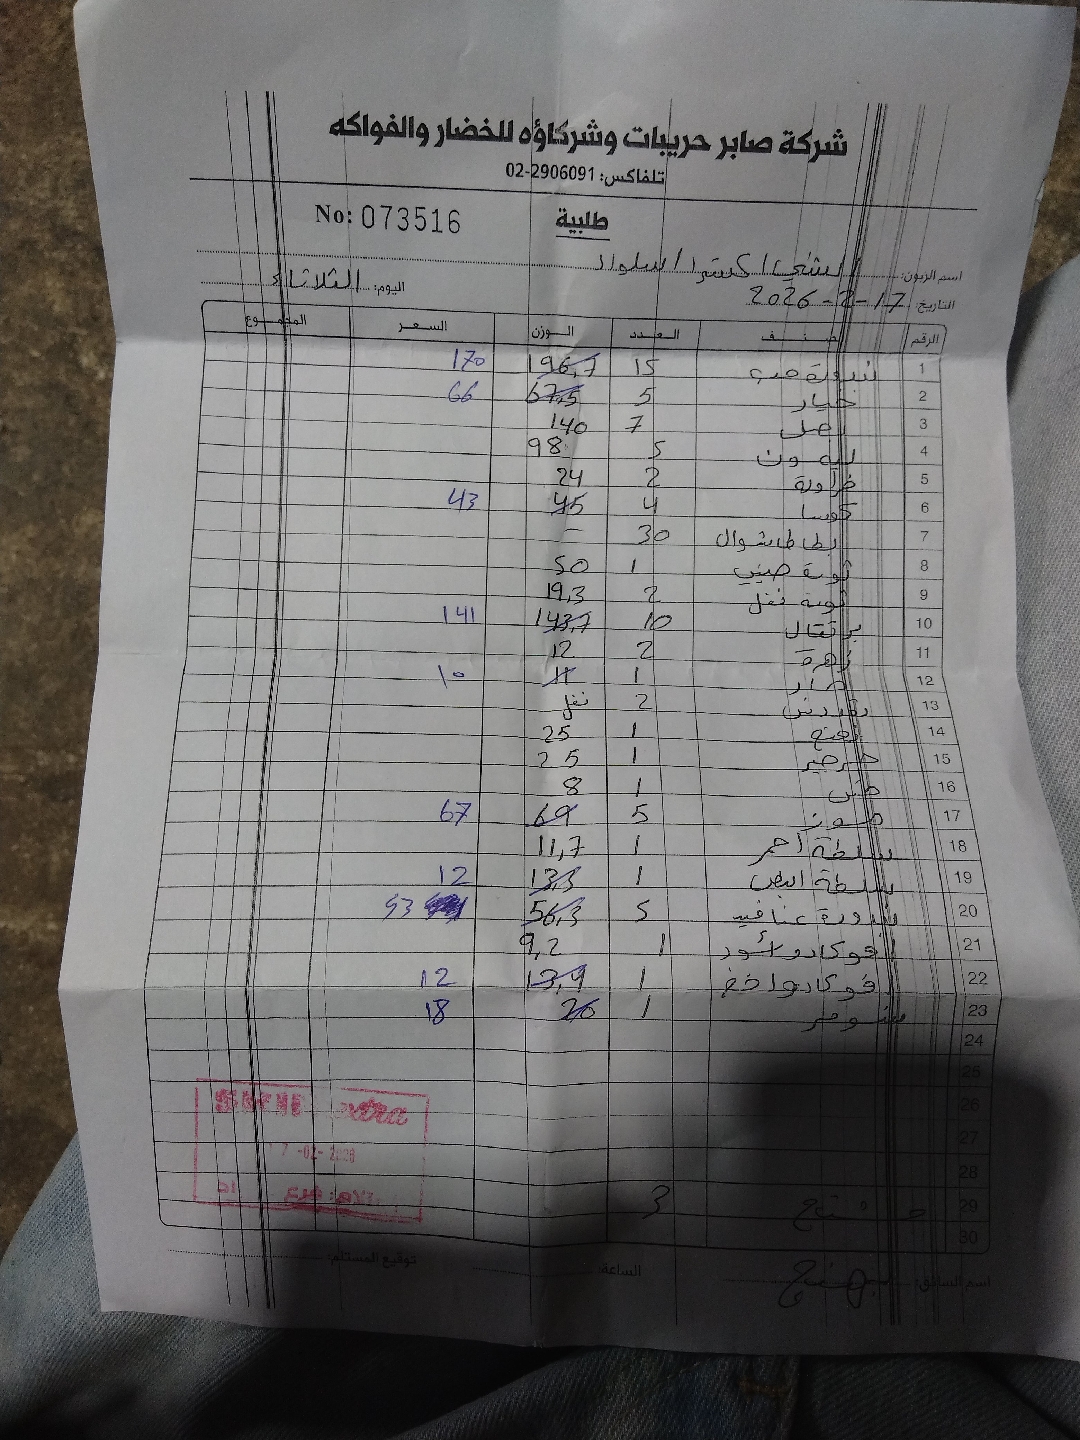 شركة صابر حريبات وشركاؤه للخضار والفواكه
تلفاكس: 02-2906091
طلبية
No: 073516
اسم الزبون: الشني اكسترا البلوار
اليوم: الثلاثاء
التاريخ: 17-2-2026
الرقم صنف العدد الوزن السعر المجموع
1 بندورة حب 15 196,7 170
2 خيار 5 67,5 66
3 بصل 7 140
4 ليمون 5 98
5 فراولة 2 24
6 كوسا 4 45 43
7 بطاطا شوال 30 -
8 ثومة صيني 1 50
9 ثومة نفل 2 19,3
10 برتقال 10 143,7 141
11 زهرة 2 12
12 1 11 10
13 بقدونس 2 نفل
14 نعنع 1 25
15 جرجير 1 25
16 خس 1 8
17 موز 5 69 67
18 سلطة احمر 1 11,7
19 سلطة ابيض 1 13,3 12
20 بندورة عناقيد 5 56,3 53
21 افوكادو أسود 1 9,2
22 فوكادو اخضر 1 13,9 12
23 شومر 1 20 18
24
25
26
27
28
29 مشتاح 3
30
extra
17-02-2026
فرع:
اسم السائق:
الساعة:
توقيع المستلم: